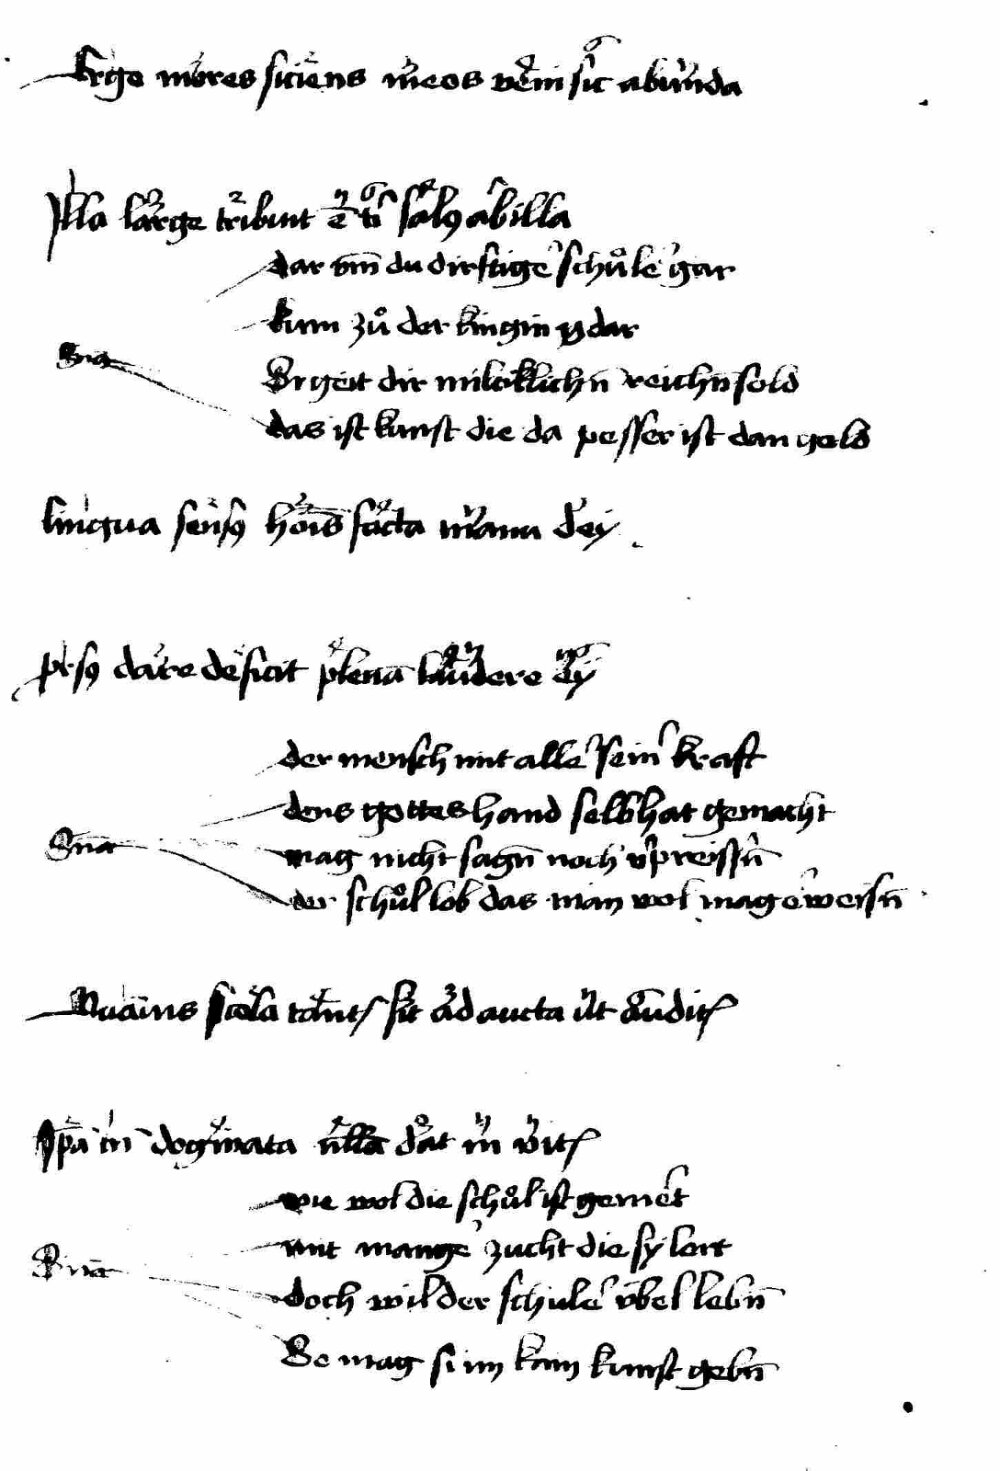 Ergo mores siciens meos veni sic abunda
Illa large tribuit
dar vm̄ du dirstige' schůle' gar
kum zů der kingin ÿ dar
Sn̄a
Sy geit dir miltiklichn̄ reichn̄ sold
das ist kunst die da pesser ist dan geld
lingua sensꝯ hoīs facta manu dei
dare deficit plenā laudere
der mensch mit alle' sein' kraft
dens gottes hand selb hat gemacht
Sn̄a
mag nicht sagn̄ noch v'preissn̄
der schůl lob das man wol mag e'weisn̄
scola sit ad aucta ut auditꝛ
dogmata nulla dat
wie wol die schůl ist gemert
mit mange' zucht die sy lert
Sn̄a
doch wil der schule' v̈bel lebn̄
So mag si im kain kunst gebn̄